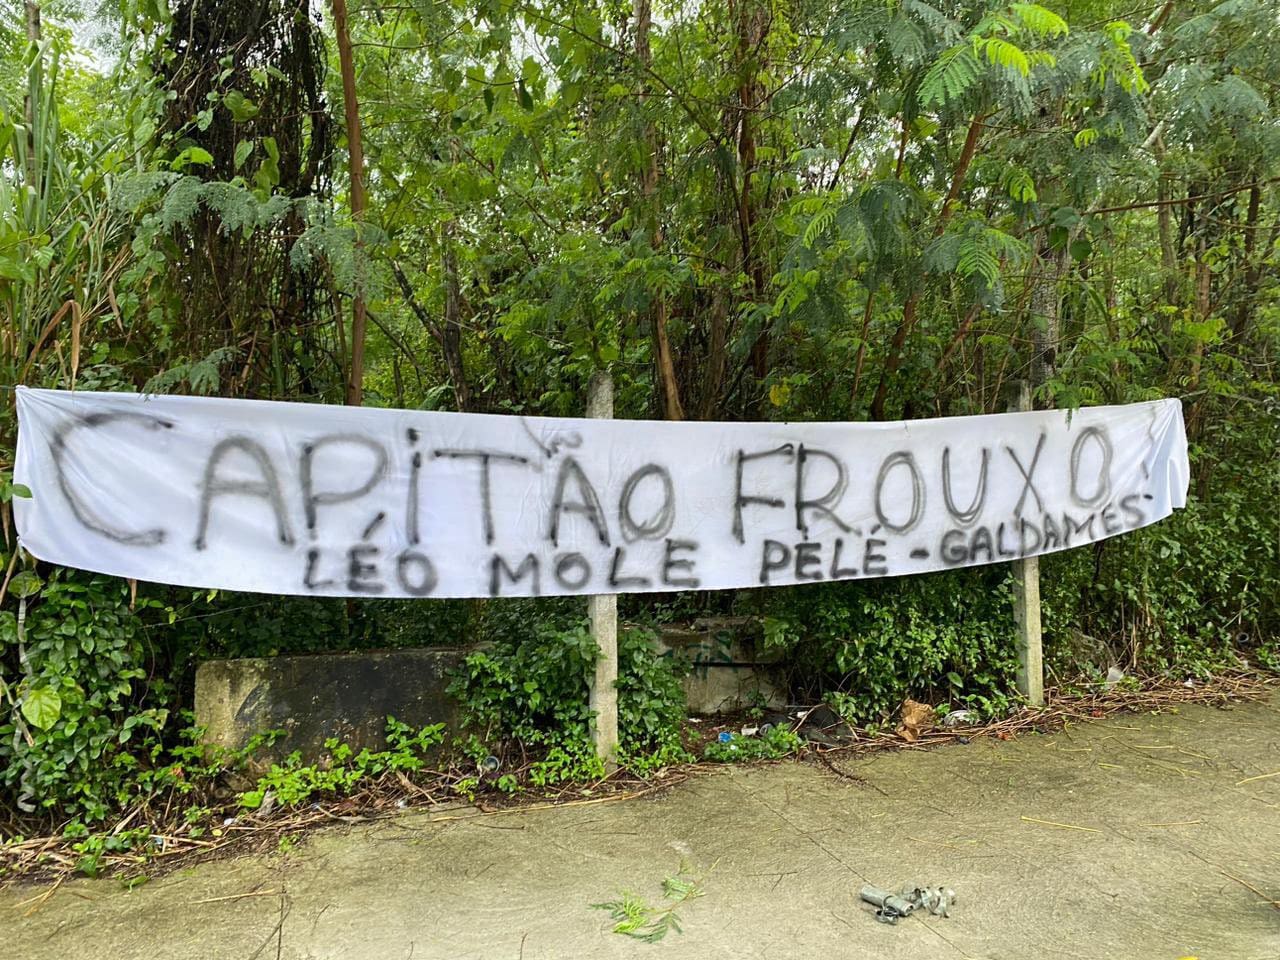 CAPiTÃO FROUXO!
LÉO MOLE PELÉ - GALDAMES